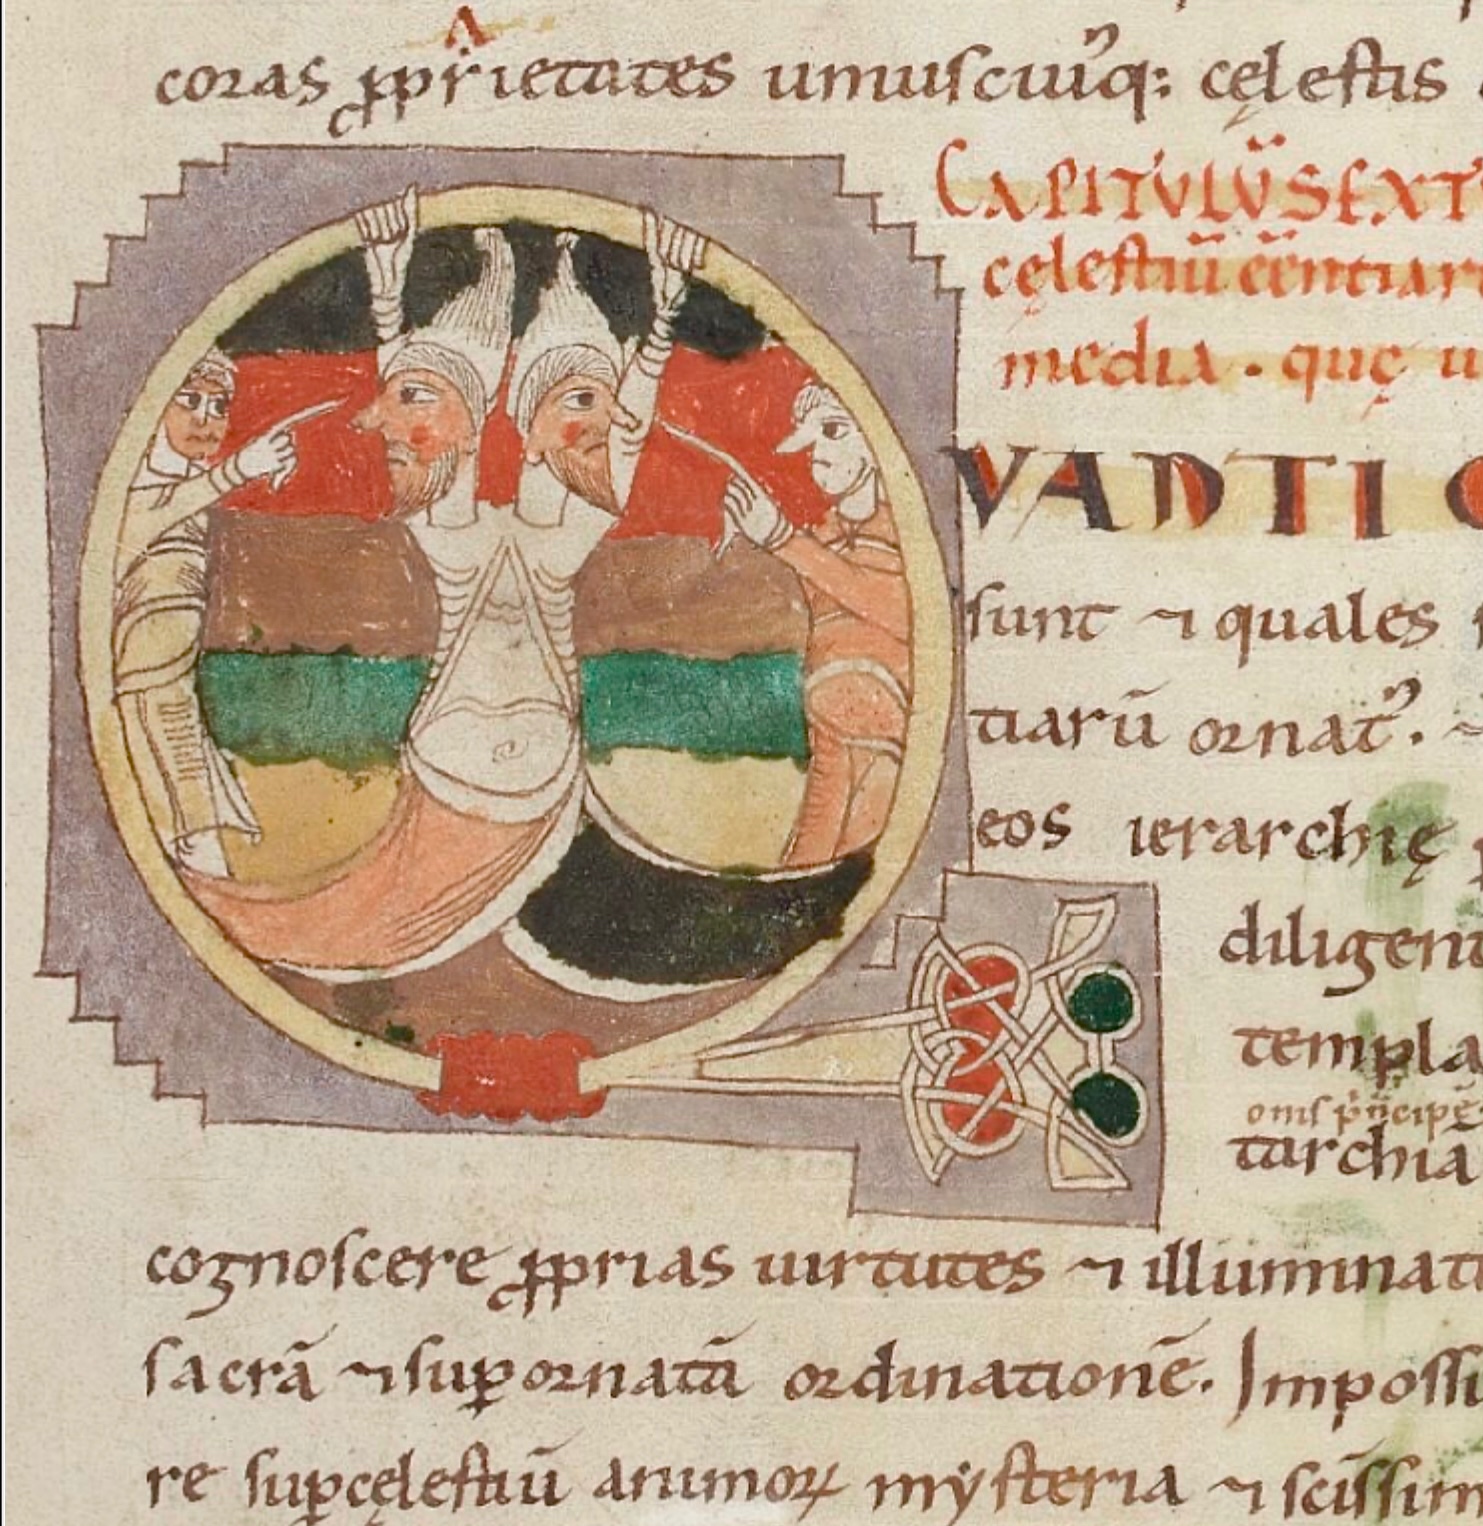 coras ꝓpr̄ietates unuuſcuiuſq: cęleſtis
CAPITVLŪ SEXT
cęleſtiū ēēntiar
media . quę u
QVANTI
sunt ⁊ quales
tiarū ornatꝰ. ⁊
eos ierarchię
diligent
templa
omſ p̄ncipę
tarchiā
cognoſcere ꝓprias uirtutes ⁊ illuminati
sacrā ⁊ suꝑornatā ordinationē. Impoſſi
re suꝑcęleſtiū animoꝝ myſteria ⁊ sc̄iſſim